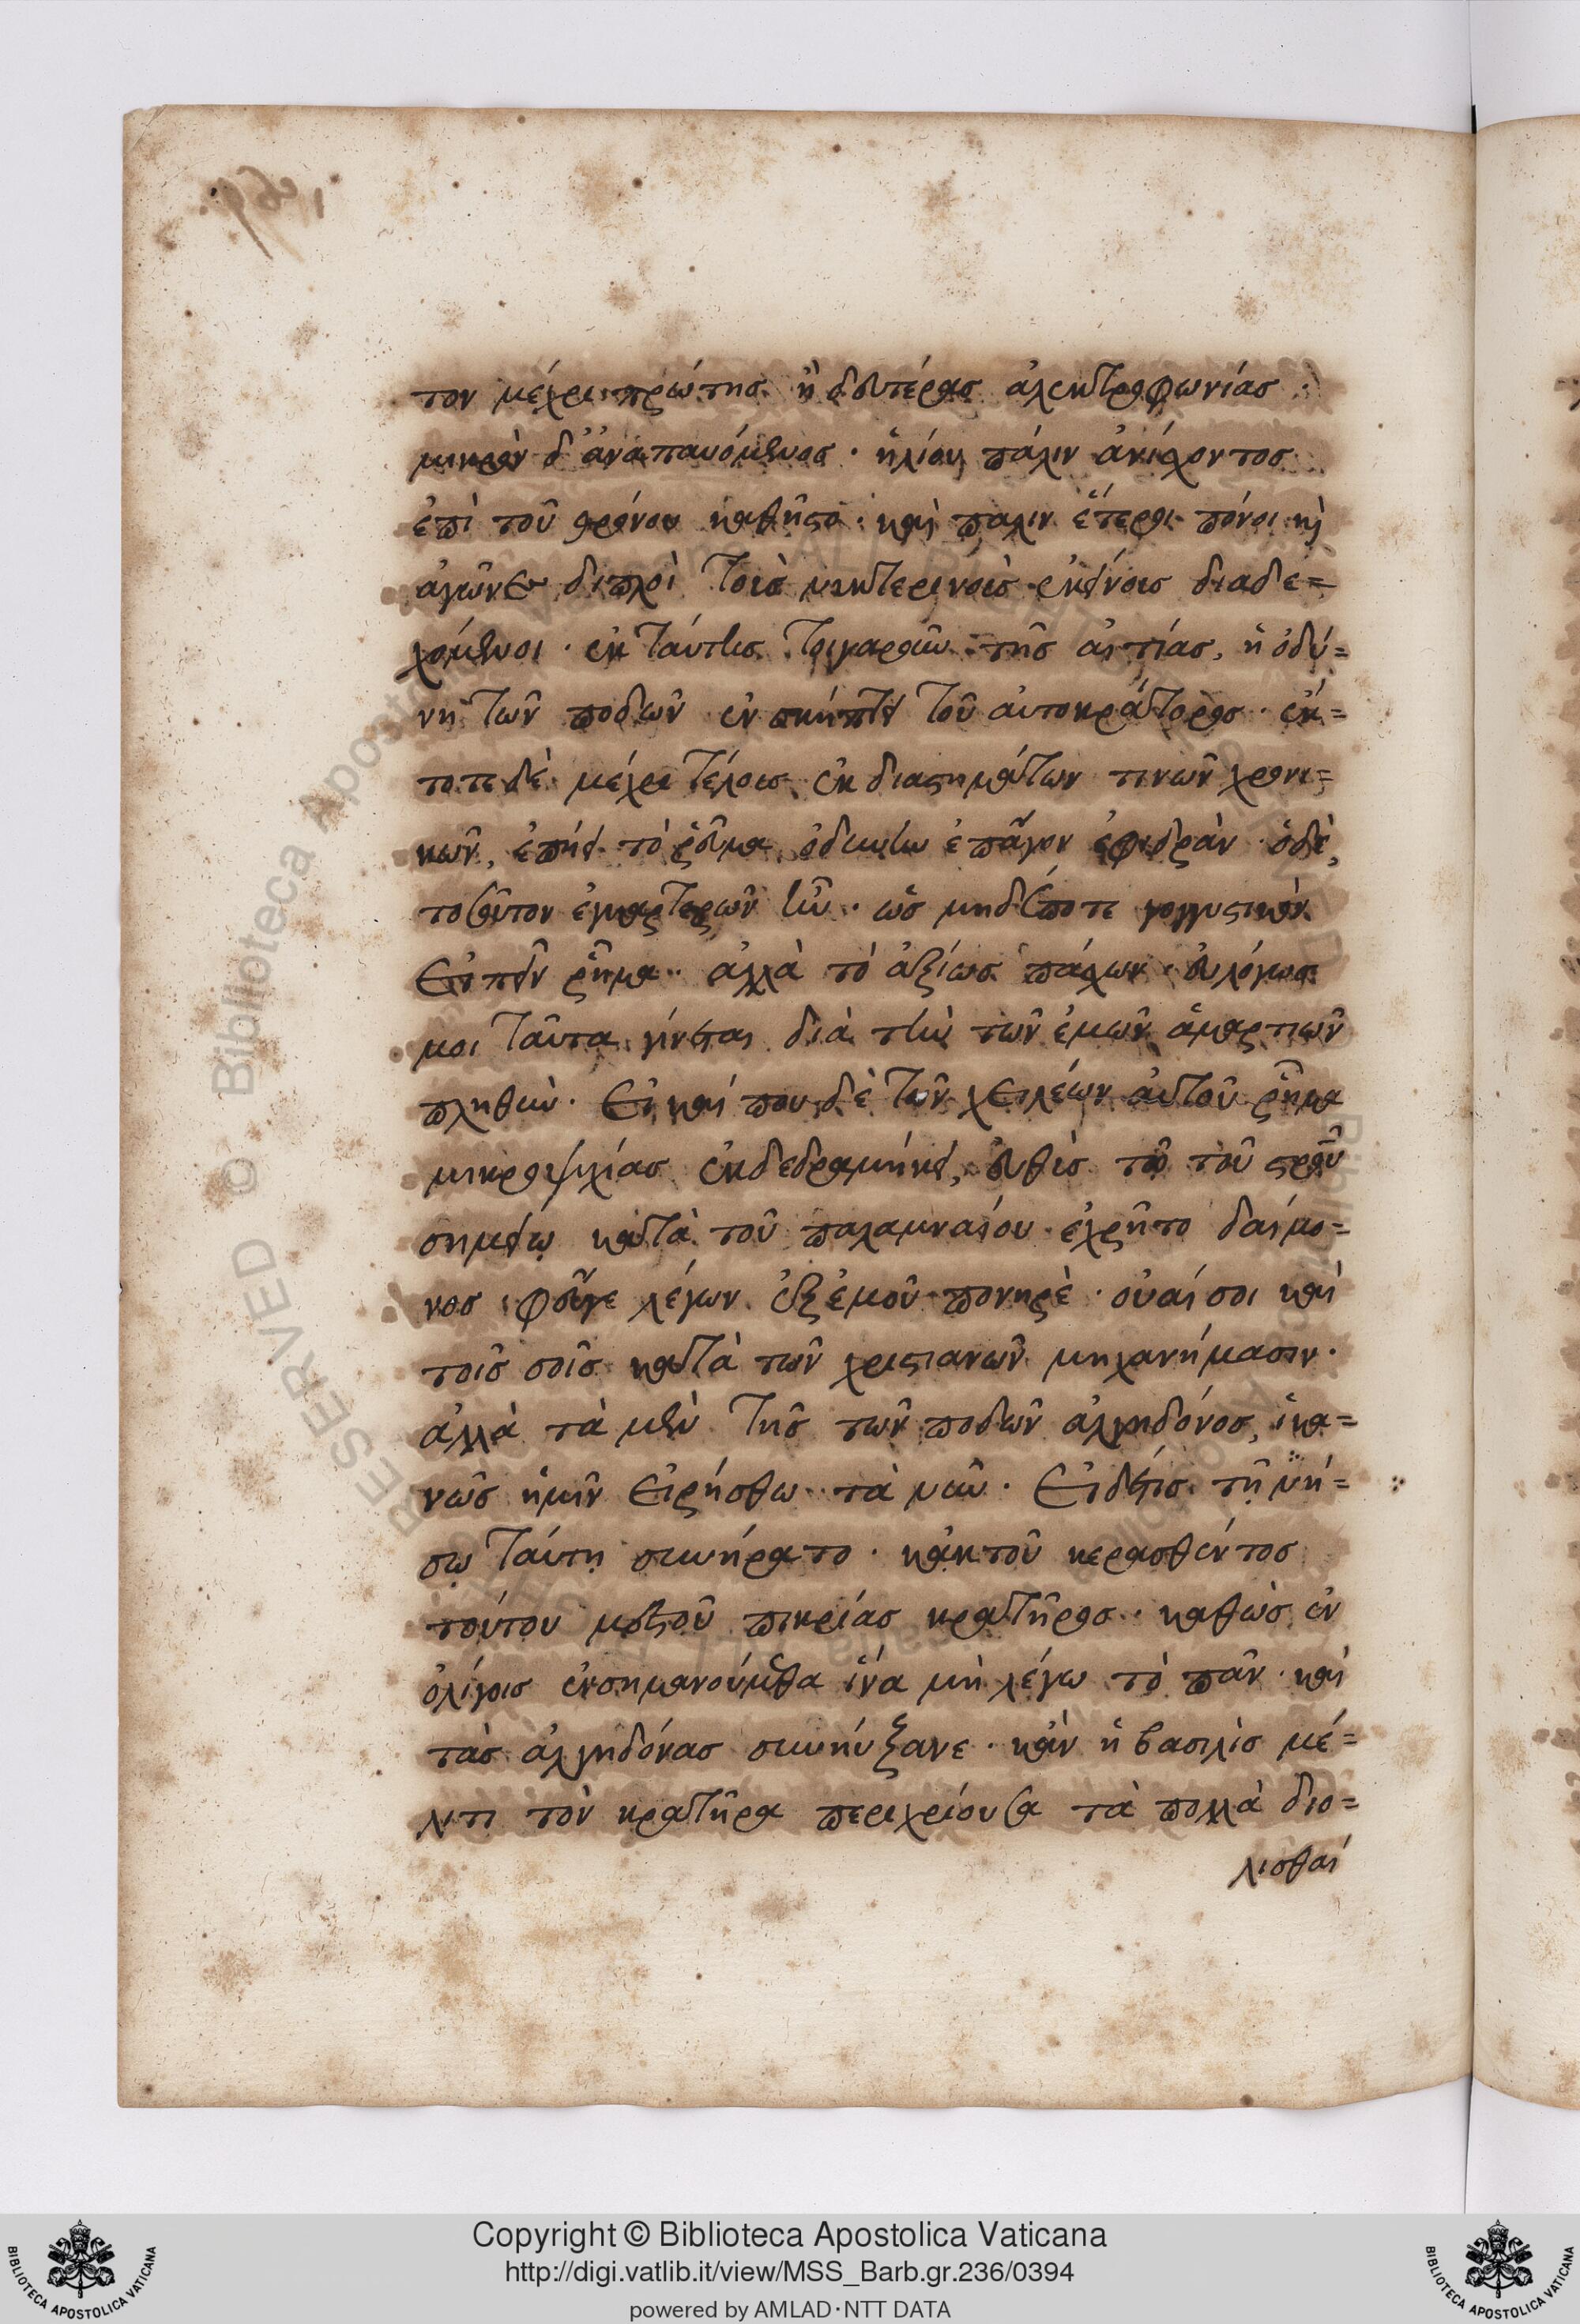 τον μέχρι πρώτης ἢ δευτέρας ἀλεκτροφωνίας.
μικρὸν δ' ἀναπαυόμενος· ἡλίου πάλιν ἀνίσχοντος
ἐπὶ τοῦ θρόνου καθῆστο· καὶ πάλιν ἕτεροι πόνοι καὶ
ἀγῶνες διπλοὶ τοὺς νυκτερινοὺς ἐκείνους διαδε=
χόμενοι· ἐκ ταύτης τοιγαροῦν τῆς αἰτίας, ἡ ὀδύ=
νη τῶν ποδῶν ἐνσκήπτει τοῦ αὐτοκράτορος· ἐκ=
τοτε δὲ μέχρι τέλους ἐκ διαστημάτων τινῶν χρονι=
κῶν, ἐπήει τὸ ῥεῦμα ὀδύνην ἐπάγον σφοδράν· ὁ δὲ,
τοσοῦτον ἐγκαρτερῶν ἦν· ὡς μηδέποτε γογγυστικὸν
εἰπεῖν ῥῆμα· ἀλλὰ τὸ ἀξίως πάσχων· εὐλόγως
μοι ταῦτα γίνεται διὰ τὴν τῶν ἐμῶν ἁμαρτιῶν
πληθύν· εἰ καί που δὲ τῶν χειλέων αὐτοῦ ῥῆμα
μικροψυχίας ἐκδεδραμήκει, εὐθὺς τῷ τοῦ σταυροῦ
σημείῳ κατὰ τοῦ παλαμναίου ἐχρῆτο δαίμο=
νος, φεῦγε λέγων ἐξ ἐμοῦ πονηρὲ· οὐαί σοι καὶ
τοῖς σοῖς κατὰ τῶν χριστιανῶν μηχανήμασιν·
ἀλλὰ τὰ μὲν τῆς τῶν ποδῶν ἀλγηδόνος, ἱκα=
νῶς ἡμῖν εἰρήσθω τὰ νῦν· εἰ δέ τις τῇ νό=
σῳ ταύτῃ συνήρατο· κἀκ τοῦ κερασθέντος
τούτου μεστοῦ πικρίας κρατῆρος· καθὼς ἐν
ὀλίγοις ἐνσημανούμεθα ἵνα μὴ λέγω τὸ πᾶν· καὶ
τὰς ἀλγηδόνας συνηύξανε· κἂν ἡ βασιλὶς μέ=
λιτι τὸν κρατῆρα περιχρίουσα τὰ πολλὰ διο=
λισθαί